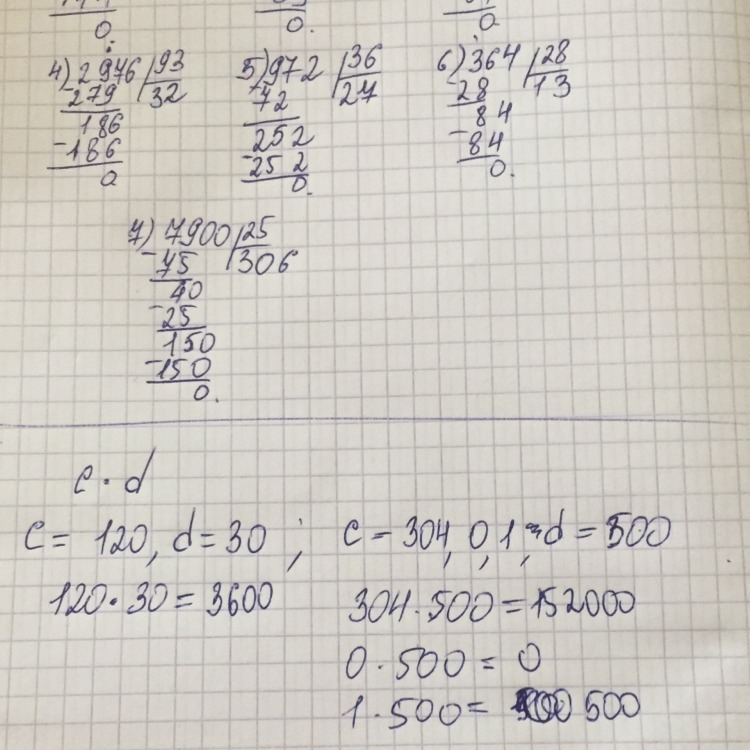 0. 0. 0.
4) 2976 | 93
- 279 | 32
186
- 186
0
5) 972 | 36
- 72 | 27
252
- 252
0.
6) 364 | 28
- 28 | 13
84
- 84
0.
7) 7900 | 25
- 75 | 306
40
- 25
150
- 150
0.
c · d
c = 120, d = 30 ; c = 304, 0, 1, d = 500
120 · 30 = 3600
304 · 500 = 152000
0 · 500 = 0
1 · 500 = 500